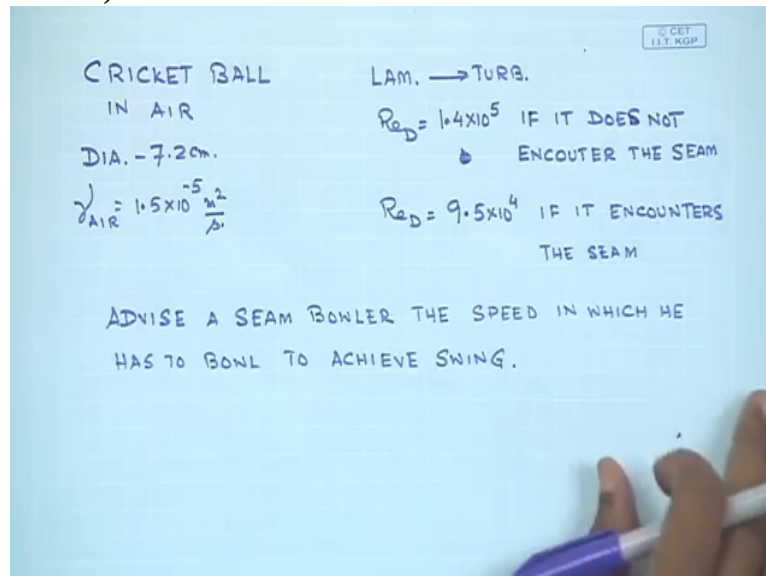 © CET
I.I.T. KGP
CRICKET BALL
IN AIR
DIA. - 7.2 cm.
γAIR = 1.5 × 10^-5 m²/s.
LAM. → TURB.
ReD = 1.4×10^5 IF IT DOES NOT
ENCOUTER THE SEAM
ReD = 9.5×10^4 IF IT ENCOUNTERS
THE SEAM
ADVISE A SEAM BOWLER THE SPEED IN WHICH HE
HAS TO BOWL TO ACHIEVE SWING.